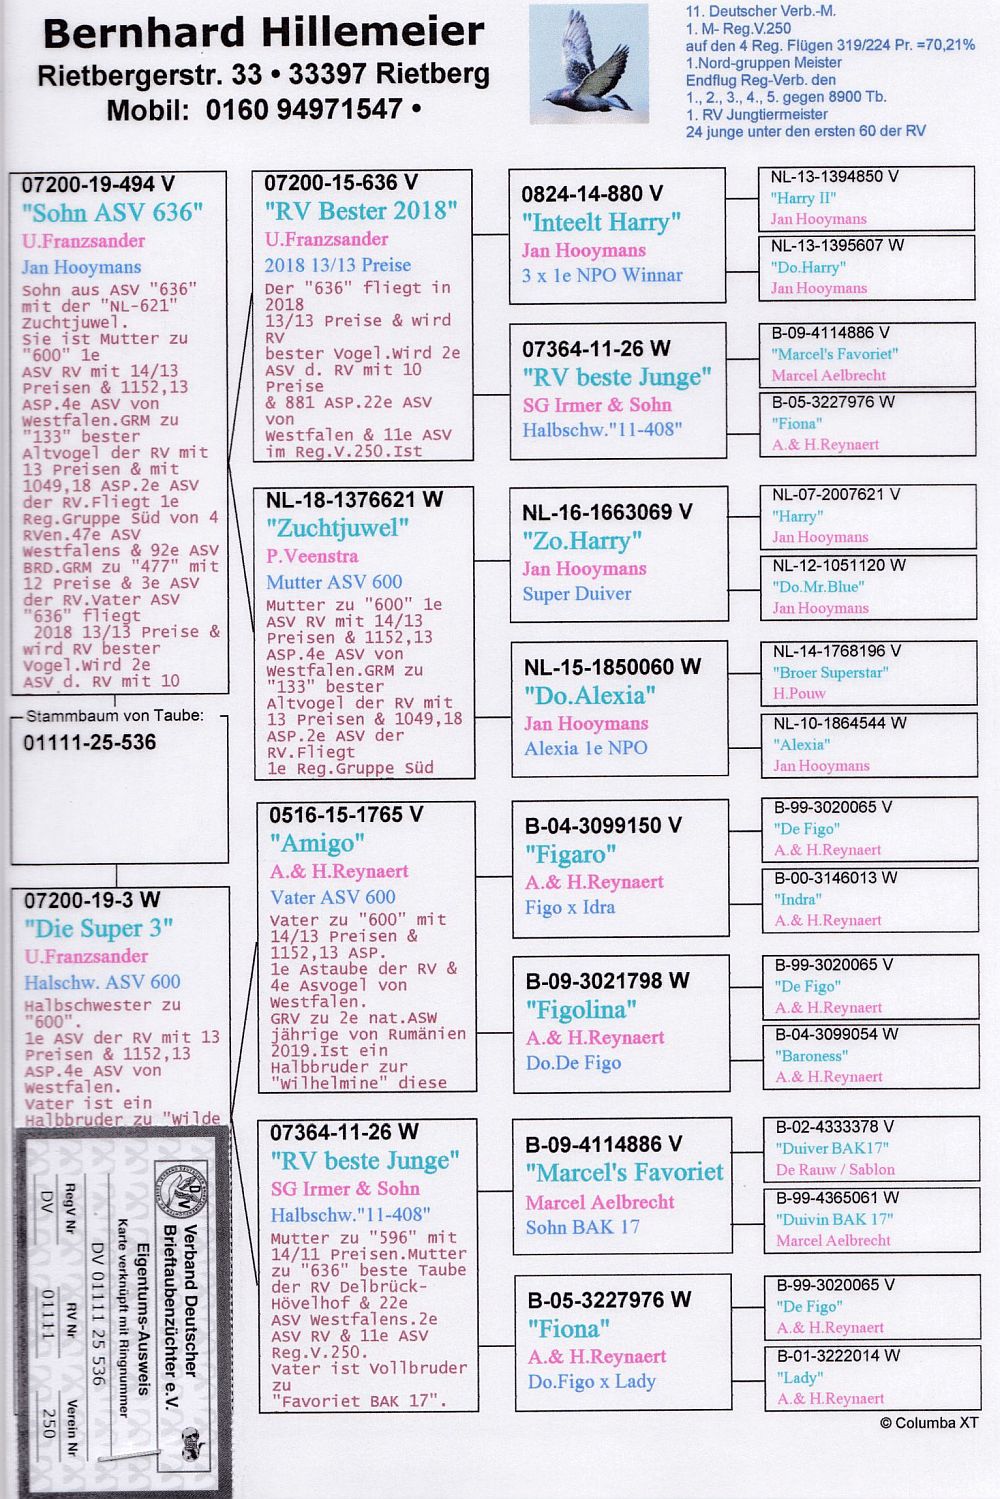 Bernhard Hillemeier
Rietbergerstr. 33 • 33397 Rietberg
Mobil: 0160 94971547 •
11. Deutscher Verb.-M.
1. M- Reg.V.250
auf den 4 Reg. Flügen 319/224 Pr. =70,21%
1.Nord-gruppen Meister
Endflug Reg-Verb. den
1., 2., 3., 4., 5. gegen 8900 Tb.
1. RV Jungtiermeister
24 junge unter den ersten 60 der RV
07200-19-494 V
"Sohn ASV 636"
U.Franzsander
Jan Hooymans
Sohn aus ASV "636"
mit der "NL-621"
Zuchtjuwel.
Sie ist Mutter zu
"600" 1e
ASV RV mit 14/13
Preisen & 1152,13
ASP.4e ASV von
Westfalen.GRM zu
"133" bester
Altvogel der RV mit
13 Preisen & mit
1049,18 ASP.2e ASV
der RV.Fliegt 1e
Reg.Gruppe Süd von 4
RVen.47e ASV
Westfalens & 92e ASV
BRD.GRM zu "477" mit
12 Preise & 3e ASV
der RV.Vater ASV
"636" fliegt
2018 13/13 Preise &
wird RV bester
Vogel.Wird 2e
ASV d. RV mit 10
Stammbaum von Taube:
01111-25-536
07200-19-3 W
"Die Super 3"
U.Franzsander
Halschw. ASV 600
Halbschwester zu
"600".
1e ASV der RV mit 13
Preisen & 1152,13
ASP.4e ASV von
Westfalen.
Vater ist ein
Halbbruder zu "Wilde
07200-15-636 V
"RV Bester 2018"
U.Franzsander
2018 13/13 Preise
Der "636" fliegt in
2018
13/13 Preise & wird
RV
bester Vogel.Wird 2e
ASV d. RV mit 10
Preise
& 881 ASP.22e ASV
von
Westfalen & 11e ASV
im Reg.V.250.Ist
NL-18-1376621 W
"Zuchtjuwel"
P.Veenstra
Mutter ASV 600
Mutter zu "600" 1e
ASV RV mit 14/13
Preisen & 1152,13
ASP.4e ASV von
Westfalen.GRM zu
"133" bester
Altvogel der RV mit
13 Preisen & 1049,18
ASP.2e ASV der
RV.Fliegt
1e Reg.Gruppe Süd
0516-15-1765 V
"Amigo"
A.& H.Reynaert
Vater ASV 600
Vater zu "600" mit
14/13 Preisen &
1152,13 ASP.
1e Astaube der RV &
4e Asvogel von
Westfalen.
GRV zu 2e nat.ASW
jährige von Rumänien
2019.Ist ein
Halbbruder zur
"Wilhelmine" diese
07364-11-26 W
"RV beste Junge"
SG Irmer & Sohn
Halbschw."11-408"
Mutter zu "596" mit
14/11 Preisen.Mutter
zu "636" beste Taube
der RV Delbrück-
Hövelhof & 22e
ASV Westfalens.2e
ASV RV & 11e ASV
Reg.V.250.
Vater ist Vollbruder
zu
"Favoriet BAK 17".
0824-14-880 V
"Inteelt Harry"
Jan Hooymans
3 x 1e NPO Winnar
07364-11-26 W
"RV beste Junge"
SG Irmer & Sohn
Halbschw."11-408"
NL-16-1663069 V
"Zo.Harry"
Jan Hooymans
Super Duiver
NL-15-1850060 W
"Do.Alexia"
Jan Hooymans
Alexia 1e NPO
B-04-3099150 V
"Figaro"
A.& H.Reynaert
Figo x Idra
B-09-3021798 W
"Figolina"
A.& H.Reynaert
Do.De Figo
B-09-4114886 V
"Marcel's Favoriet
Marcel Aelbrecht
Sohn BAK 17
B-05-3227976 W
"Fiona"
A.& H.Reynaert
Do.Figo x Lady
NL-13-1394850 V
"Harry II"
Jan Hooymans
NL-13-1395607 W
"Do.Harry"
Jan Hooymans
B-09-4114886 V
"Marcel's Favoriet"
Marcel Aelbrecht
B-05-3227976 W
"Fiona"
A.& H.Reynaert
NL-07-2007621 V
"Harry"
Jan Hooymans
NL-12-1051120 W
"Do.Mr.Blue"
Jan Hooymans
NL-14-1768196 V
"Broer Superstar"
H.Pouw
NL-10-1864544 W
"Alexia"
Jan Hooymans
B-99-3020065 V
"De Figo"
A.& H.Reynaert
B-00-3146013 W
"Indra"
A.& H.Reynaert
B-99-3020065 V
"De Figo"
A.& H.Reynaert
B-04-3099054 W
"Baroness"
A.& H.Reynaert
B-02-4333378 V
"Duiver BAK17"
De Rauw / Sablon
B-99-4365061 W
"Duivin BAK 17"
Marcel Aelbrecht
B-99-3020065 V
"De Figo"
A.& H.Reynaert
B-01-3222014 W
"Lady"
A.& H.Reynaert
© Columba XT
Verband Deutscher
Brieftaubenzüchter e.V.
Eigentums-Ausweis
Karte verknüpft mit Ringnummer
DV 01111 25 536
RegV Nr RV Nr Verein Nr
DV 01111 250